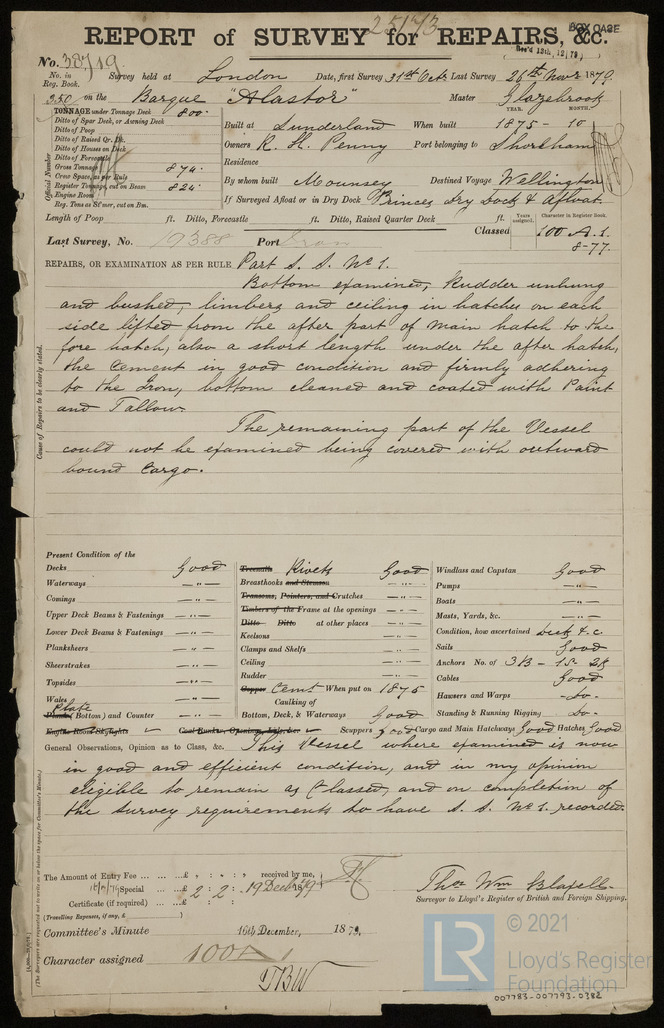 25173
REPORT of SURVEY for REPAIRS, &c.
BOX CASE
Rec'd 13th, 12, 79
No. 38719.
No. in Reg. Book.
Survey held at London Date, first Survey 31st Octr Last Survey 26th Novr 1879.
350 on the Barque "Alastor" Master Glazebrook
TONNAGE under Tonnage Deck 800
Ditto of Spar Deck, or Awning Deck
Ditto of Poop
Ditto of Raised Qr. Dk.
Ditto of Houses on Deck
Ditto of Forecastle
Gross Tonnage 874.
Crew Space, as per Rule
Register Tonnage, cut on Beam 824.
Engine Room
Reg. Tons as St'mer, cut on Bm.
Official Number
YEAR. MONTH.
Built at Sunderland When built 1875 - 10
Owners R. H. Penny Port belonging to Shoreham
Residence
By whom built Mounsey Destined Voyage Wellington
If Surveyed Afloat or in Dry Dock Princes Dry Dock & Afloat.
Length of Poop ft. Ditto, Forecastle ft. Ditto, Raised Quarter Deck ft.
Years assigned. Character in Register Book.
Classed 100 A.1.
8-77.
Last Survey, No. 19388 Port Iron
REPAIRS, OR EXAMINATION AS PER RULE Part S. S. No 1.
Bottom examined, Rudder unhung
and bushed, limbers and ceiling in hatches on each
side lifted from the after part of main hatch to the
fore hatch, also a short length under the after hatch,
the cement in good condition and firmly adhering
to the Iron, bottom cleaned and coated with Paint
and Tallow.
The remaining part of the Vessel
could not be examined being covered with outward
bound Cargo.
Cause of Repairs to be clearly stated.
Present Condition of the
Decks Good
Waterways — " —
Comings — " —
Upper Deck Beams & Fastenings — " —
Lower Deck Beams & Fastenings — " —
Planksheers — " —
Sheerstrakes — " —
Topsides — " —
Wales — " —
Plate
Planks (Bottom) and Counter — " —
Engine Room Skylights
Treenails Rivets Good
Breasthooks and Stemson — " —
Transoms, Pointers, and Crutches — " —
Timbers of the Frame at the openings — " —
Ditto Ditto at other places — " —
Keelsons — " —
Clamps and Shelfs — " —
Ceiling — " —
Rudder — " —
Copper Cemt When put on 1875
Caulking of
Bottom, Deck, & Waterways Good
Coal Bunker, Openings, Lids, &c.
Windlass and Capstan Good
Pumps — " —
Boats — " —
Masts, Yards, &c. — " —
Condition, how ascertained Deck & c.
Sails Good
Anchors No. of 3 B - 1 S. 2 K
Cables Good
Hawsers and Warps - Do -
Standing & Running Rigging - Do -
Scuppers Good Cargo and Main Hatchways Good Hatches Good
General Observations, Opinion as to Class, &c. This Vessel where examined is now
in good and efficient condition, and in my opinion
eligible to remain as Classed, and on completion of
the Survey requirements to have S. S. No 1. recorded.
(The Surveyors are requested not to write on or below the space for Committee's Minute.)
The Amount of Entry Fee ... £ : : received by me,
Special ... £ 2 : 2 : 19 Decr 1879
Certificate (if required) ... £ : :
(Travelling Expenses, if any, £ )
Thos Wm Blaxell.
Surveyor to Lloyd's Register of British and Foreign Shipping.
Committee's Minute 16th December, 1879.
Character assigned 100 A 1
TBW
LR
© 2021
Lloyd's Register
Foundation
007783-007793-0382